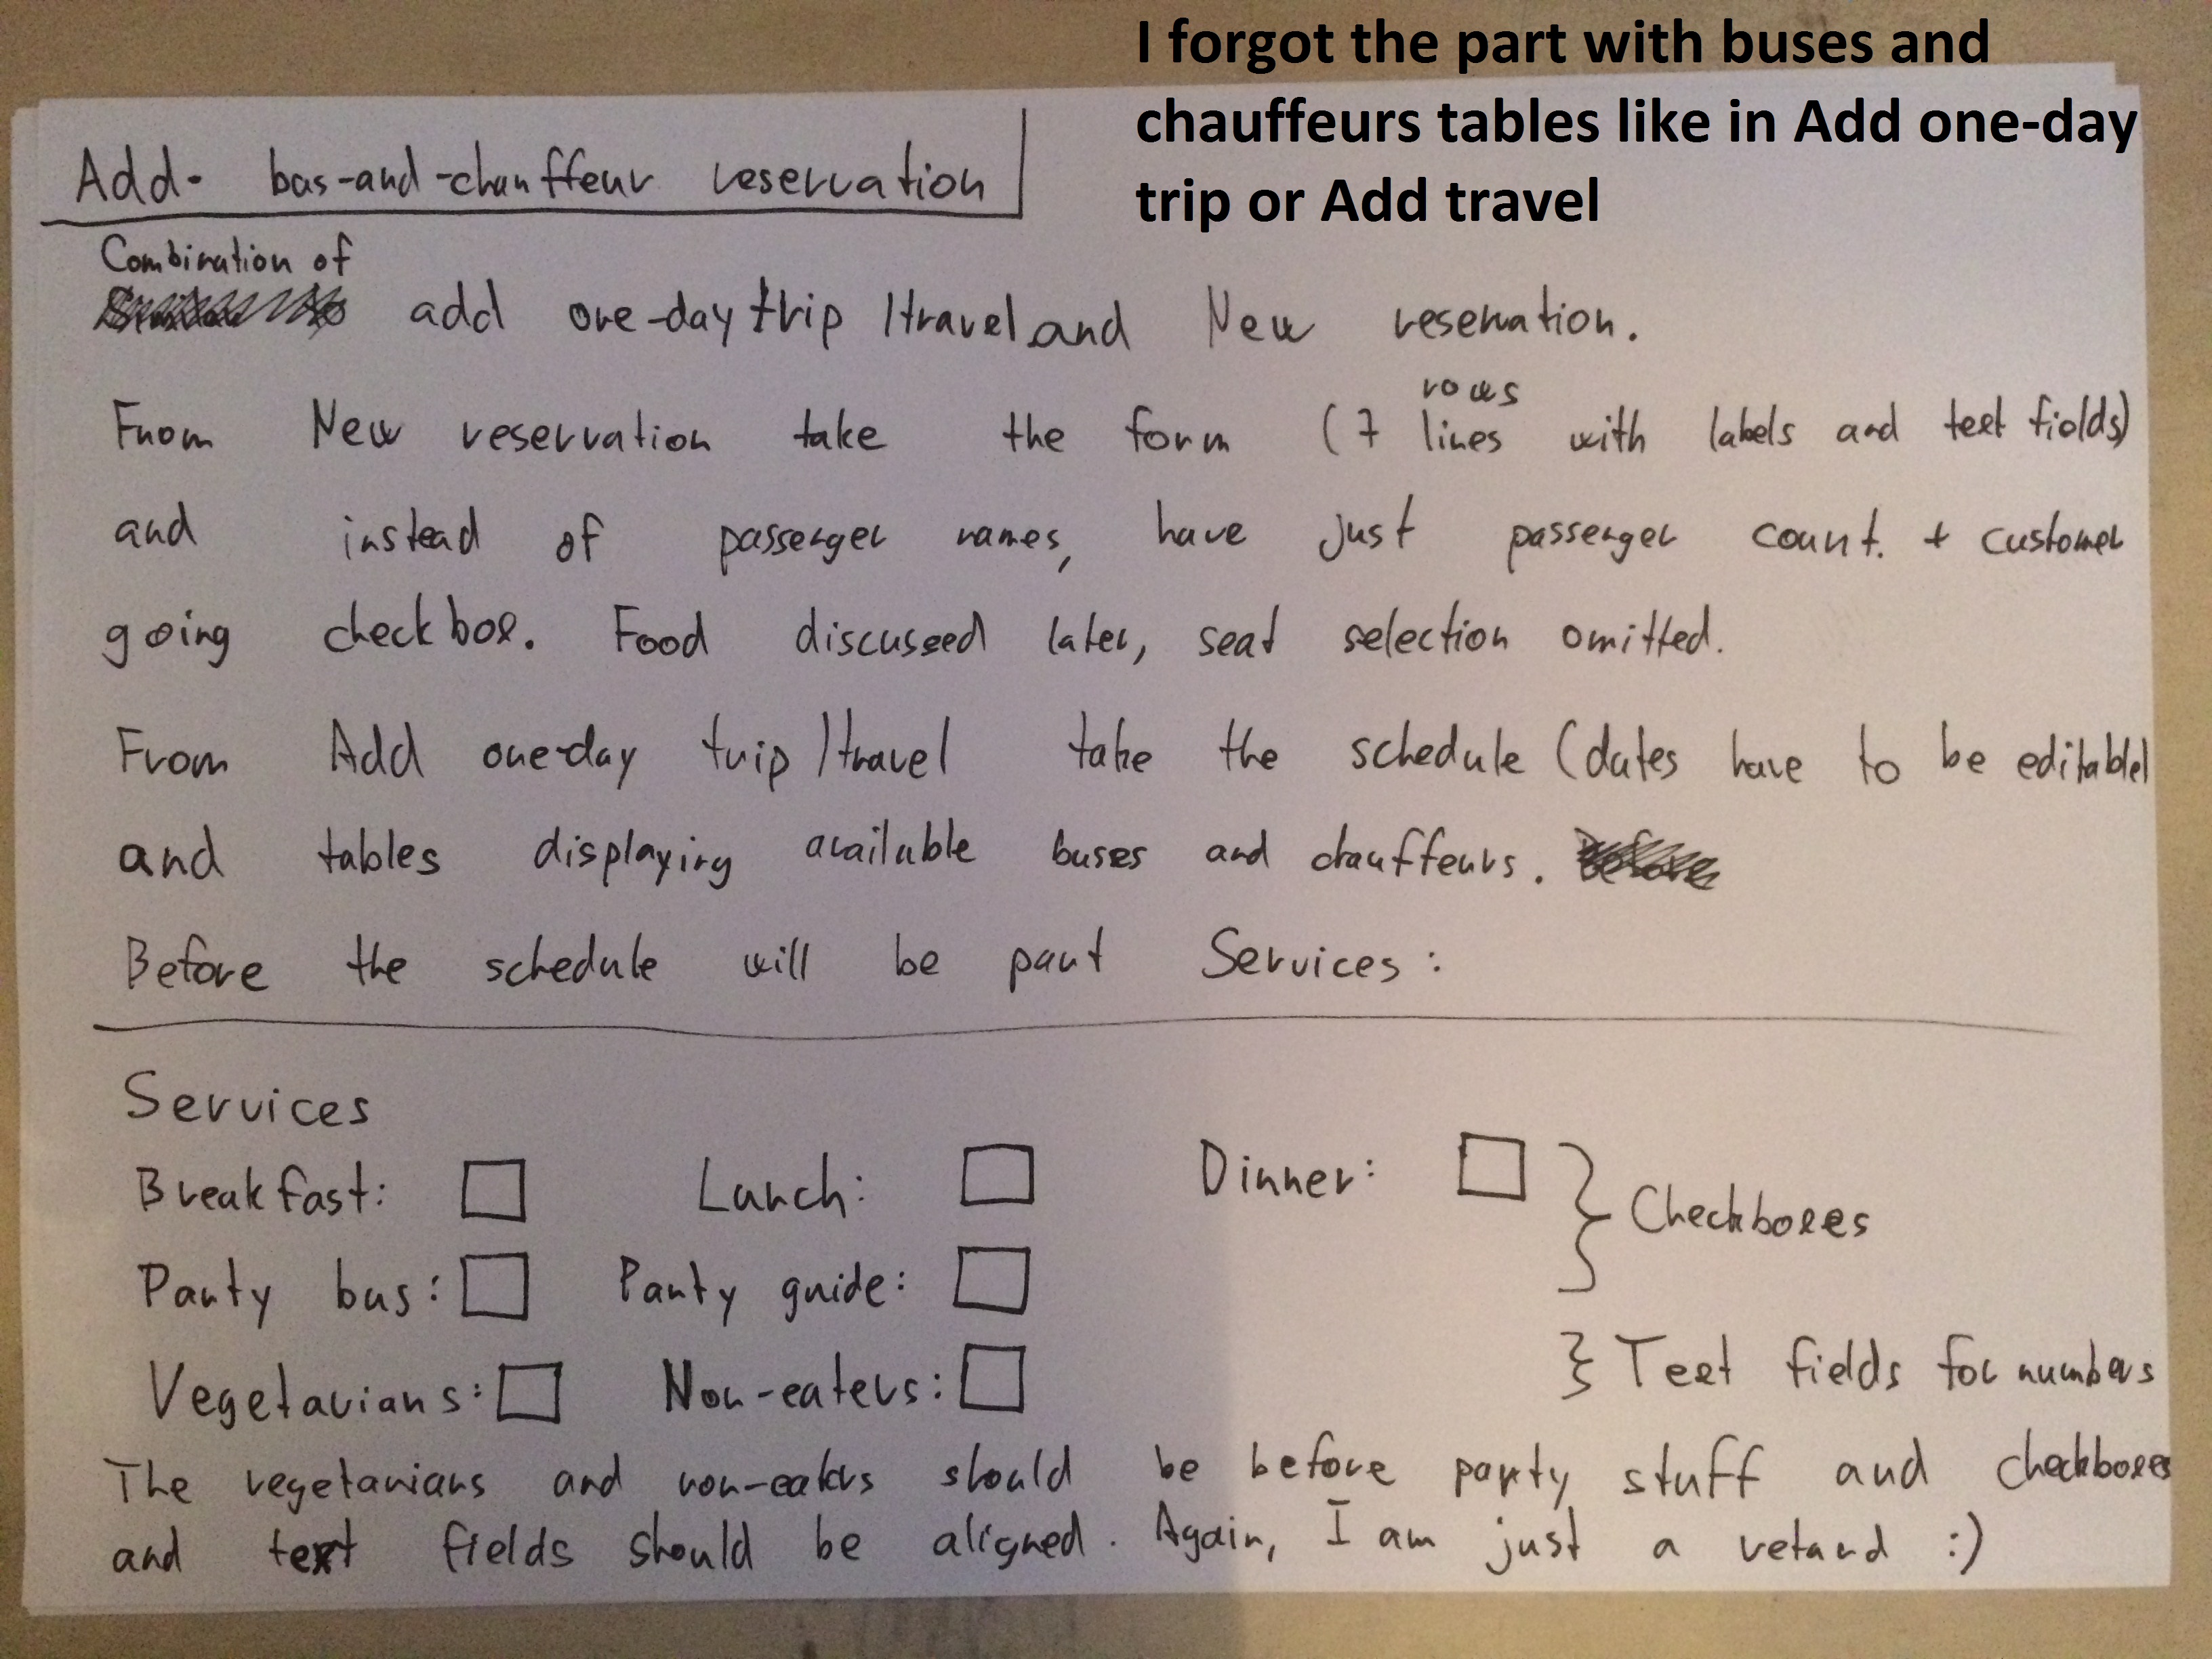 I forgot the part with buses and
chauffeurs tables like in Add one-day
trip or Add travel
Add- bus-and-chauffeur reservation
Combination of
add one-day trip /travel and New reservation.
rows
From New reservation take the form (7 lines with labels and text fields)
and instead of passenger names, have just passenger count. + customer
going checkbox. Food discussed later, seat selection omitted.
From Add one-day trip /travel take the schedule (dates have to be editable)
and tables displaying available buses and chauffeurs. Before
Before the schedule will be part Services:
Services
Breakfast: Lunch: Dinner: } Checkboxes
Party bus: Party guide:
Vegetarians: Non-eaters: } Text fields for numbers
The vegetarians and non-eaters should be before party stuff and checkboxes
and text fields should be aligned. Again, I am just a retard :)